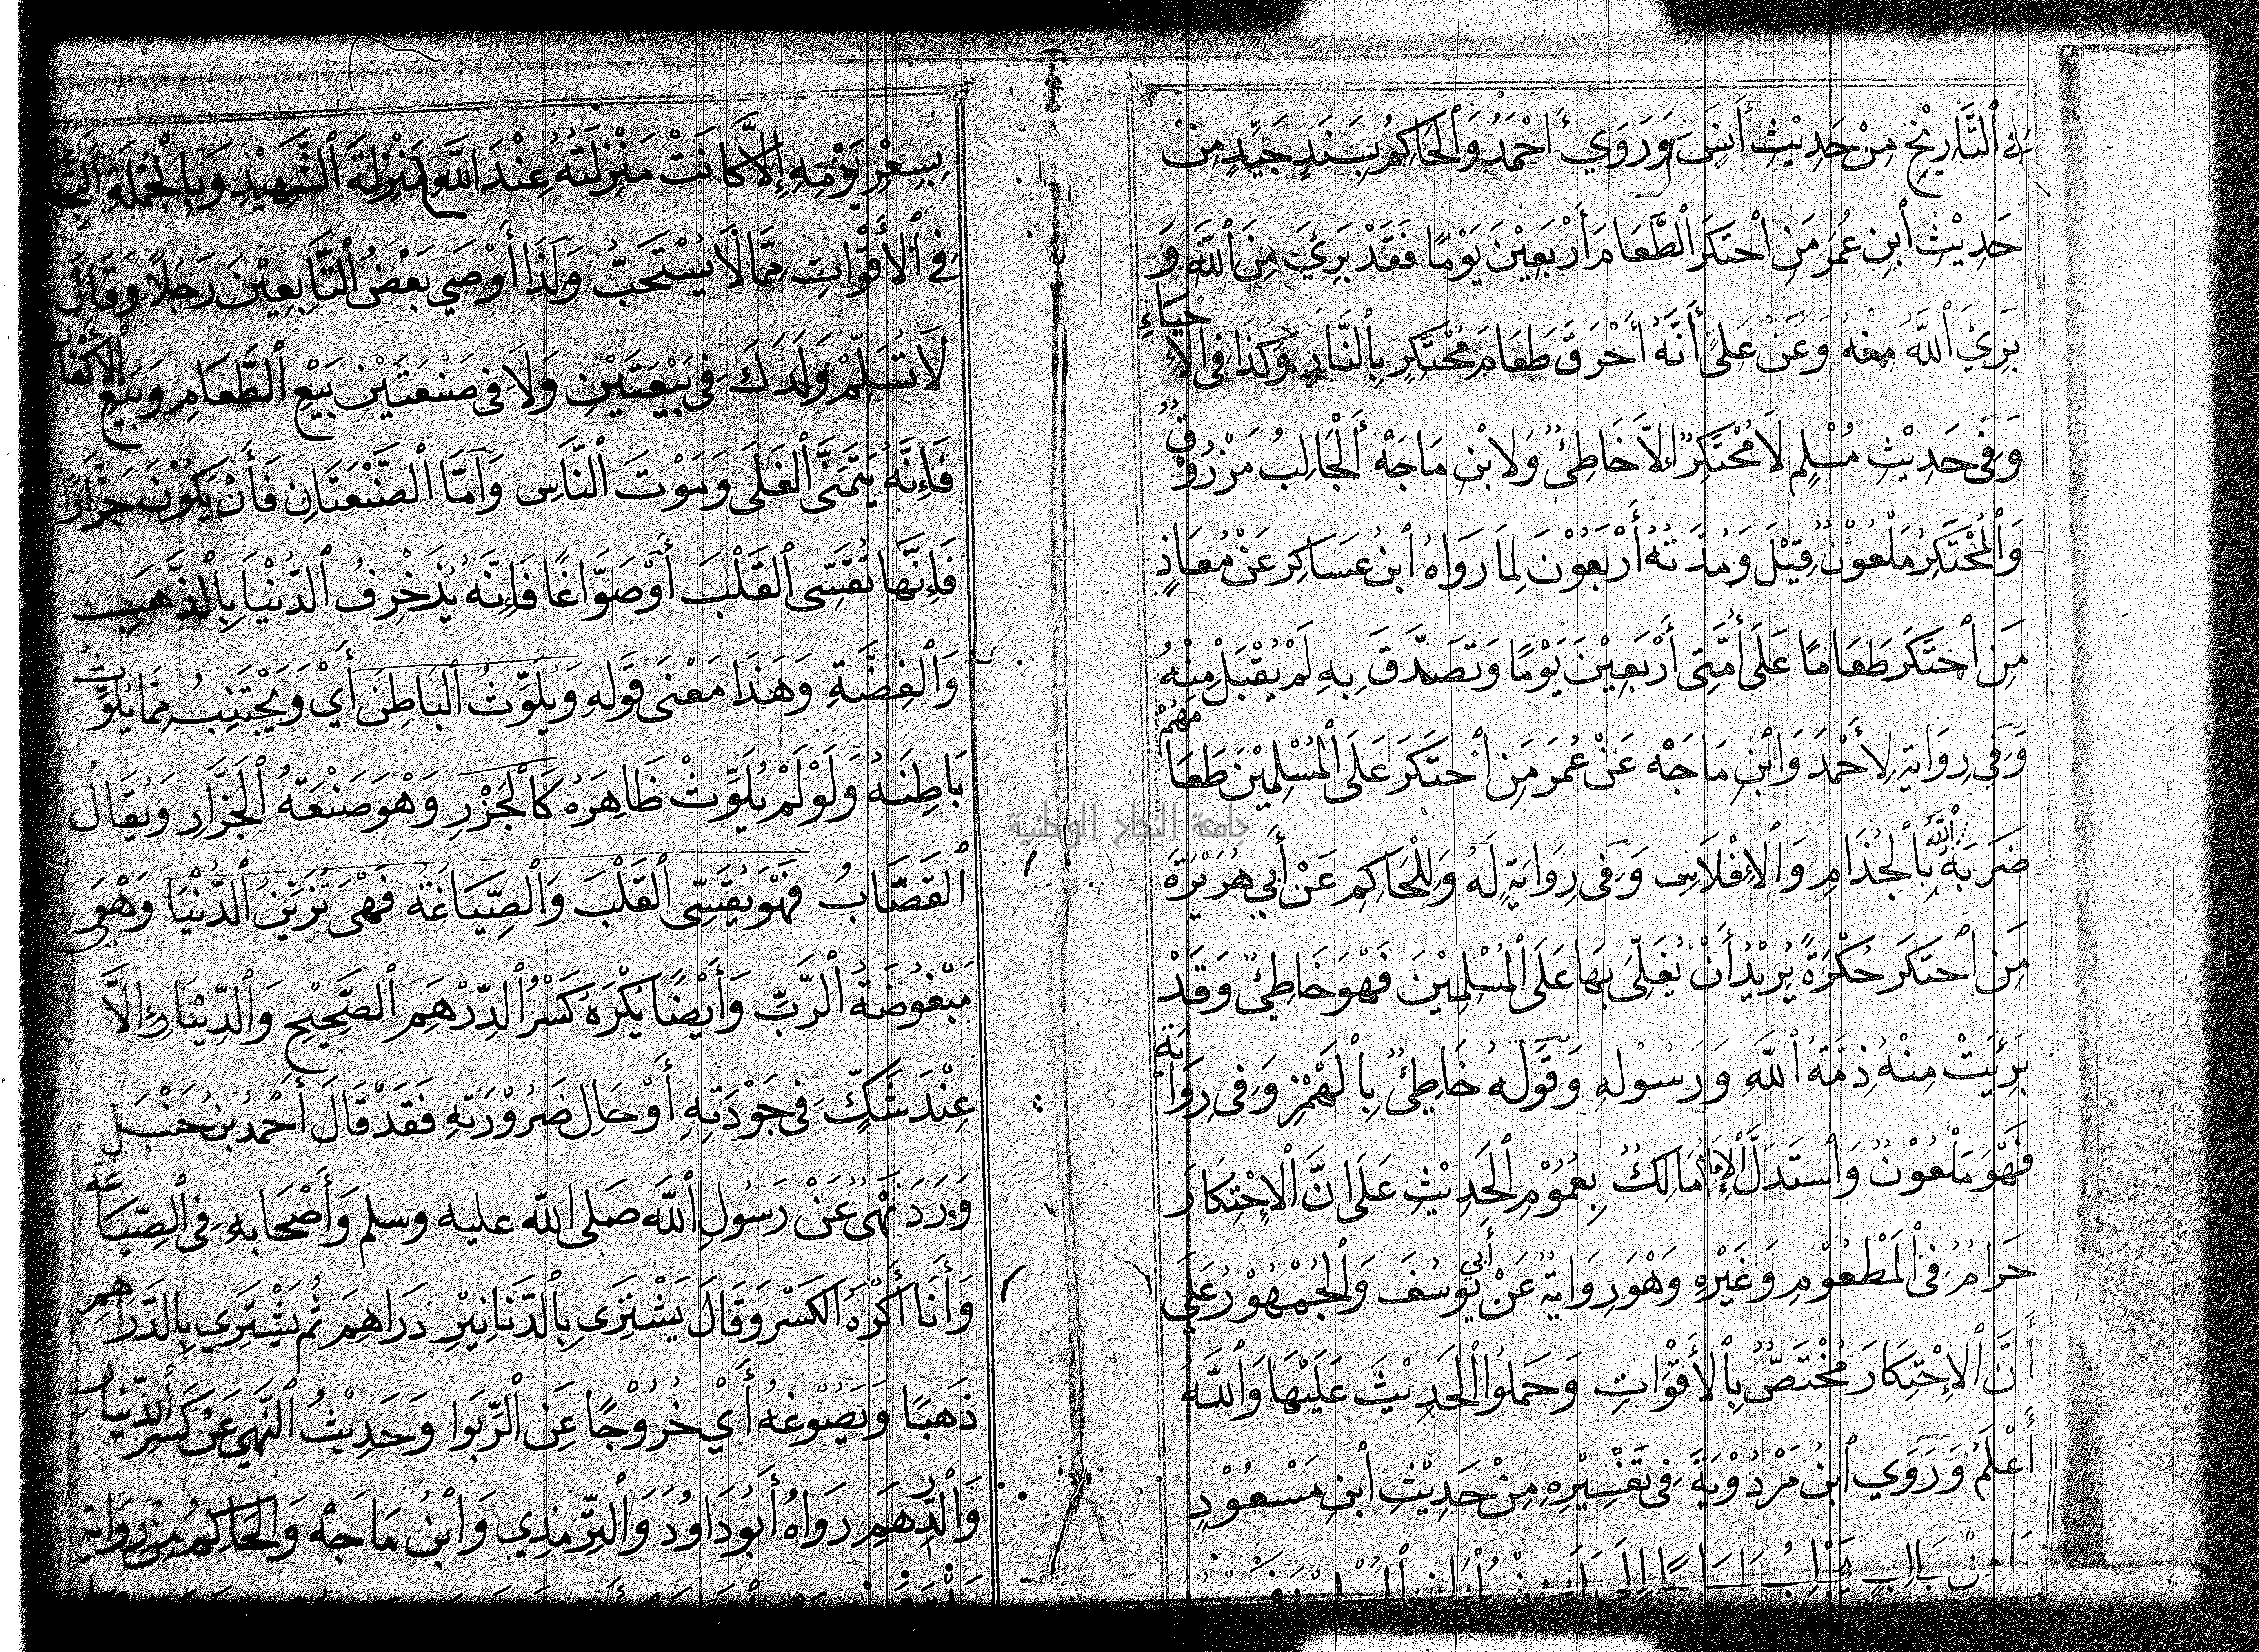 فِي ٱلتَّأرِيْخِ مِنْ حَدِيْثِ أَنَسٍ وَرَوَي أَحْمَدُ وَٱلْحَاكِمُ بِسَنَدٍ جَيِّدٍ مِنْ
حَدِيْثِ ٱبْنِ عُمَرَ مَنِ ٱحْتَكَرَ ٱلطَّعَامَ أَرْبَعِيْنَ يَوْمًا فَقَدْ بَرِئَ مِنَ ٱللَّهِ وَ
بَرِيَ ٱللَّهُ مِنْهُ وَعَنْ عَلِيٍّ أَنَّهُ أَحْرَقَ طَعَامَ مُحْتَكِرٍ بِالنَّارِ وَكَذَا فِى الْإِحْيَاءِ
وَفِى حَدِيْثِ مُسْلِمٍ لَا مُحْتَكِرٌ إِلَّا خَاطِئٌ وَلِابْنِ مَاجَهْ أَلْجَالِبُ مَرْزُوْقٌ
وَٱلْمُحْتَكِرُ مَلْعُوْنٌ قِيْلَ وَمُدَّتُهُ أَرْبَعُوْنَ لِمَا رَوَاهُ ٱبْنُ عَسَاكِر عَنْ مُعَاذٍ
مَنِ ٱحْتَكَرَ طَعَامًا عَلَى أُمَّتِى أَرْبَعِيْنَ يَوْمًا وَتَصَدَّقَ بِهِ لَمْ يُقْبَلْ مِنْهُ
وَفِي رِوَايَةٍ لِأَحْمَدَ وَابْنِ مَاجَهْ عَنْ عُمَرَ مَنِ ٱحْتَكَرَ عَلَى ٱلْمُسْلِمِيْنَ طَعَامَهُمْ
ضَرَبَهُ ٱللَّهُ بِالْجُذَامِ وَالْإِفْلَاسِ وَفِى رِوَايَةٍ لَهُ وَلِلْحَاكِمِ عَنْ أَبِي هُرَيْرَةَ
مَنِ ٱحْتَكَرَ حُكْرَةً يُرِيْدُ أَنْ يُغَلِّىَ بِهَا عَلَى ٱلْمُسْلِمِيْنَ فَهْوَ خَاطِئٌ وَقَدْ
بَرِئَتْ مِنْهُ ذِمَّةُ ٱللَّهِ وَرَسُوْلِهِ وَقَوْلُهُ خَاطِئٌ بِالْهَمْزِ وَفِى رِوَايَةٍ
فَهْوَ مَلْعُوْنٌ وَاسْتَدَلَّ ٱلْإِمَامُ مَالِكٌ بِعُمُوْمِ ٱلْحَدِيْثِ عَلَى انَّ ٱلْإِحْتِكَارَ
حَرَامٌ فِى ٱلْمَطْعُوْمِ وَغَيْرِهِ وَهْوَ رِوَايَةٌ عَنْ أَبِي يُوْسُفَ وَٱلْجُمْهُوْرُ عَلَي
أَنَّ ٱلْإِحْتِكَارَ مُخْتَصٌّ بِالْأَقْوَاتِ وَحَمَلُوا ٱلْحَدِيْثَ عَلَيْهَا وَٱللَّهُ
أَعْلَمُ وَرَوَي ٱبْنُ مَرْدُوْيَةَ فِى تَفْسِيْرِهِ مِنْ حَدِيْثِ ٱبْنِ مَسْعُوْدٍ
مَا مِنْ جَالِبٍ يَجْلِبُ طَعَامًا إِلَى
بِسِعْرِ يَوْمِهِ إِلَّا كَانَتْ مَنْزِلَتُهُ عِنْدَ ٱللَّهِ مَنْزِلَةَ ٱلشَّهِيْدِ وَبِالْجُمْلَةِ
فِى ٱلْأَقْوَاتِ مِمَّا لَا يُسْتَحَبُّ وَلِذَا أَوْصَي بَعْضُ ٱلتَّابِعِيْنَ رَجُلًا وَقَالَ
لَا تُسَلِّمْ وَلَدَكَ فِى بَيْعَتَيْنِ وَلَا فِى صَنْعَتَيْنِ بَيْعِ ٱلطَّعَامِ وَبَيْعِ ٱلْأَكْفَانِ
فَإِنَّهُ يَتَمَنَّى ٱلْغَلَى وَمَوْتَ ٱلنَّاسِ وَأَمَّا الصَّنْعَتَانِ فَأَنْ يَكُوْنَ جَزَّارًا
فَإِنَّهَا تُقَسِّى ٱلْقَلْبَ أَوْ صَوَّاغًا فَإِنَّهُ يُزَخْرِفُ ٱلدُّنْيَا بِالْذَّهَبِ
وَٱلْفِضَّةِ وَهَذَا مَعْنَى قَوْلِهِ وَيُلَوِّثُ ٱلْبَاطِنَ أَيْ وَيَجْتَنِبُ مِمَّا يُلَوِّثُ
بَاطِنَهُ وَلَوْ لَمْ يُلَوِّثْ ظَاهِرَهُ كَالْجَزْرِ وَهْوَ صَنْعَةُ ٱلْجَزَّارِ وَيُقَالُ
ٱلْقَصَّابُ فَهْوَ يُقَسِّى ٱلْقَلْبَ وَٱلْصِّيَاغَةُ فَهْىَ تُزَيِّنُ ٱلدُّنْيَا وَهْىَ
مَبْغُوْضَةُ ٱلرَّبِّ وَأَيْضًا يُكْرَهُ كَسْرُ ٱلدِّرْهَمِ ٱلصَّحِيْحِ وَٱلدِّيْنَارِ إِلَّا
عِنْدَ شَكٍّ فِى جَوْدَتِهِ أَوْ حَالِ ضَرُوْرَتِهِ فَقَدْ قَالَ أَحْمَدُ بْنُ حَنْبَلٍ
وَرَدَ نَهْىٌ عَنْ رَسُوْلِ ٱللَّهِ صلى الله عليه وسلم وَأَصْحَابِهِ فِى ٱلْصِّيَاغَةِ
وَأَنَا أَكْرَهُ الكَسْرَ وَقَالَ يَشْتَرِى بِٱلدَّنَانِيْرِ دَرَاهِمَ ثُمَّ يَشْتَرِي بِالدَّرَاهِمِ
ذَهَبًا وَيَصُوْغُهُ أَيْ خُرُوْجًا عَنِ ٱلْرِّبَوا وَحَدِيْثُ ٱلنَّهْيِ عَنْ كَسْرِ ٱلدِّيْنَارِ
وَٱلْدِّرْهَمِ رَوَاهُ أَبُوْ دَاوُدَ وَٱلْتِرْمِذِي وَابْنُ مَاجَهْ وَالحَاكِمُ مِنْ رِوَايَةِ
جامعة النجاح الوطنية